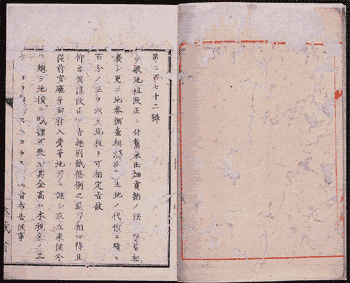 第二百七十二號
般地租改正ニ付舊來田畑貢納ノ法ハ悉皆相
廢シ更ニ地券調査相濟次第土地ノ代價ニ隨ヒ
百分ノ三ヲ以テ地租ト可相定旨被
仰出候條改正ノ旨趣別紙條例之通可相心得且
從前官廳并郡村入費等地所ニ課シ取立來候分
總テ地價ニ賦課可致尤其金高ハ本税金ノ三
ヨリ スヘカラス候 旨布告候事